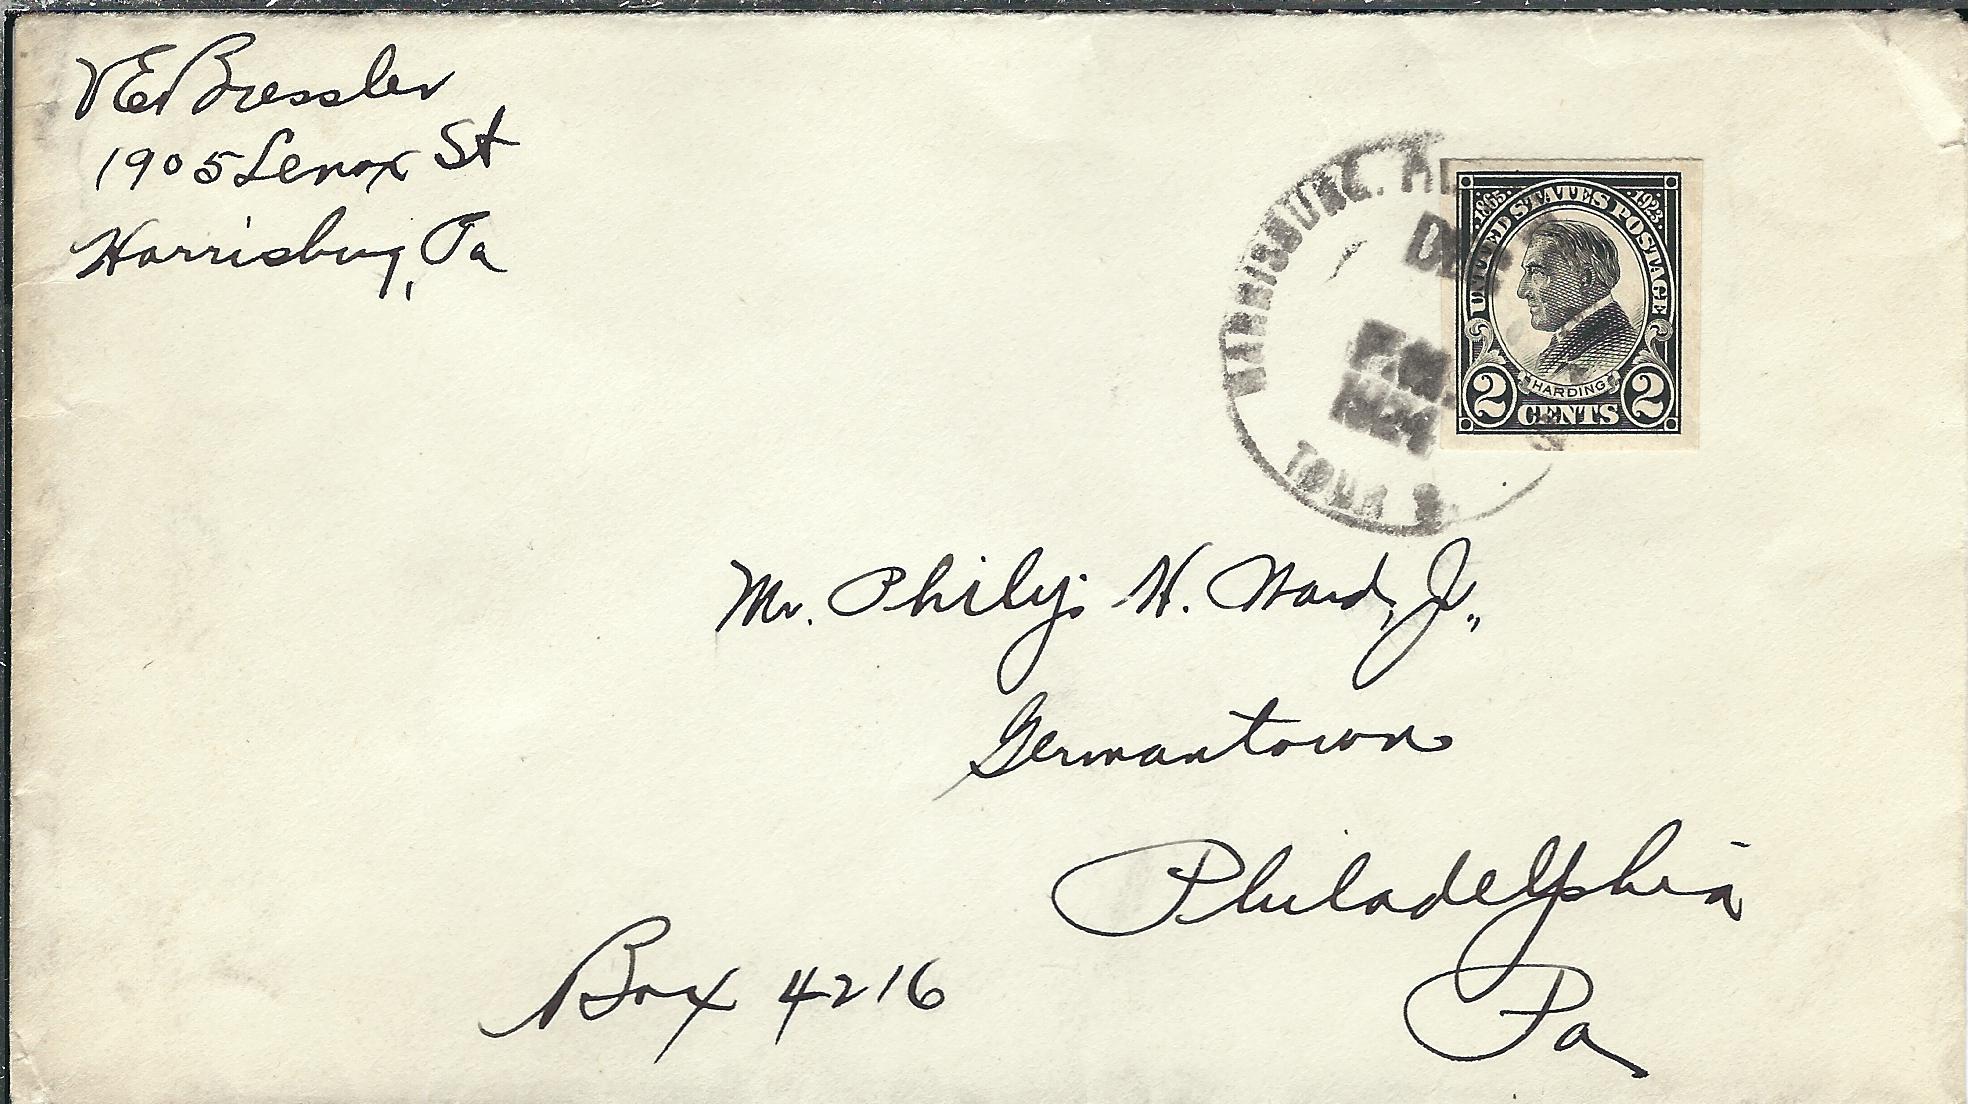 VE Bressler
1905 Lenox St
Harrisburg, Pa
HARRISBURG.
DEC
PM
1924
TOUR
1865 1923
UNITED STATES POSTAGE
HARDING
2 CENTS 2
Mr. Philip H. Ward, Jr.,
Germantown
Philadelphia
Box 4216
Pa